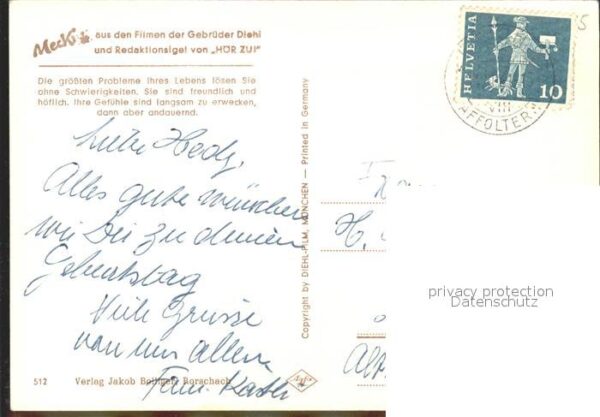 Mecki aus den Filmen der Gebrüder Diehl
und Redaktionsigel von „HÖR ZU!"
Die größten Probleme Ihres Lebens lösen Sie
ohne Schwierigkeiten. Sie sind freundlich und
höflich. Ihre Gefühle sind langsam zu erwecken,
dann aber andauernd.
Liebe Hedy,
Alles gute wünschen
wir Dir zu deinem
Geburtstag
Viele Grüsse
von uns allen
Fam. Kath
512 Verlag Jakob Rorschach
Agfa
Copyright by DIEHL-FILM, MÜNCHEN — Printed in Germany
HELVETIA
10
VIII
AFFOLTERN
5
H.
privacy protection
Datenschutz